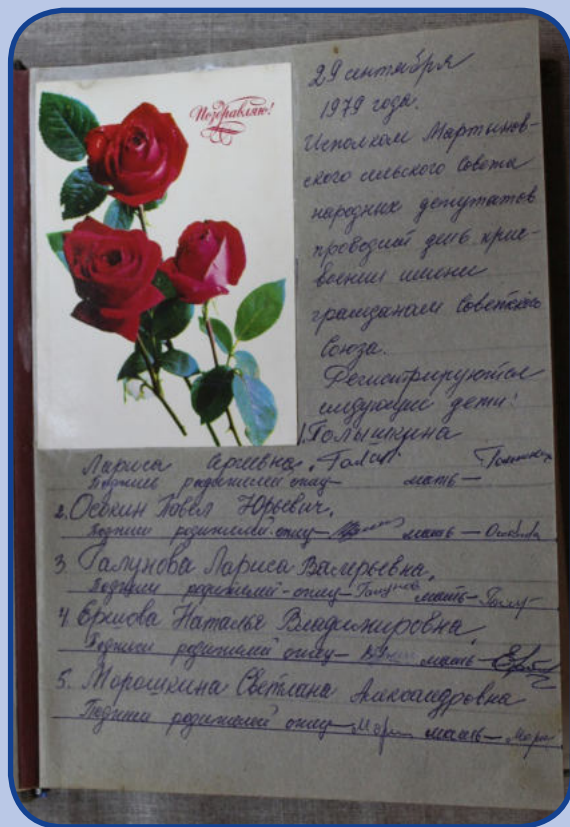 Поздравляю!
29 сентября
1979 года.
Исполком Мартынов-
ского сельского Совета
народных депутатов
проводит день прис-
воения имени
гражданам Советского
Союза.
Регистрируются
следующие дети:
1. Голышкина
Лариса Сергеевна.
Подписи родителей отец — мать —
2. Осокин Павел Юрьевич.
Подписи родителей отец — мать —
3. Галунова Лариса Валерьевна.
Подписи родителей - отец — мать —
4. Наталья Владимировна
Подписи родителей отец — мать —
5. Морошкина Светлана Александровна
Подписи родителей отец — мать —